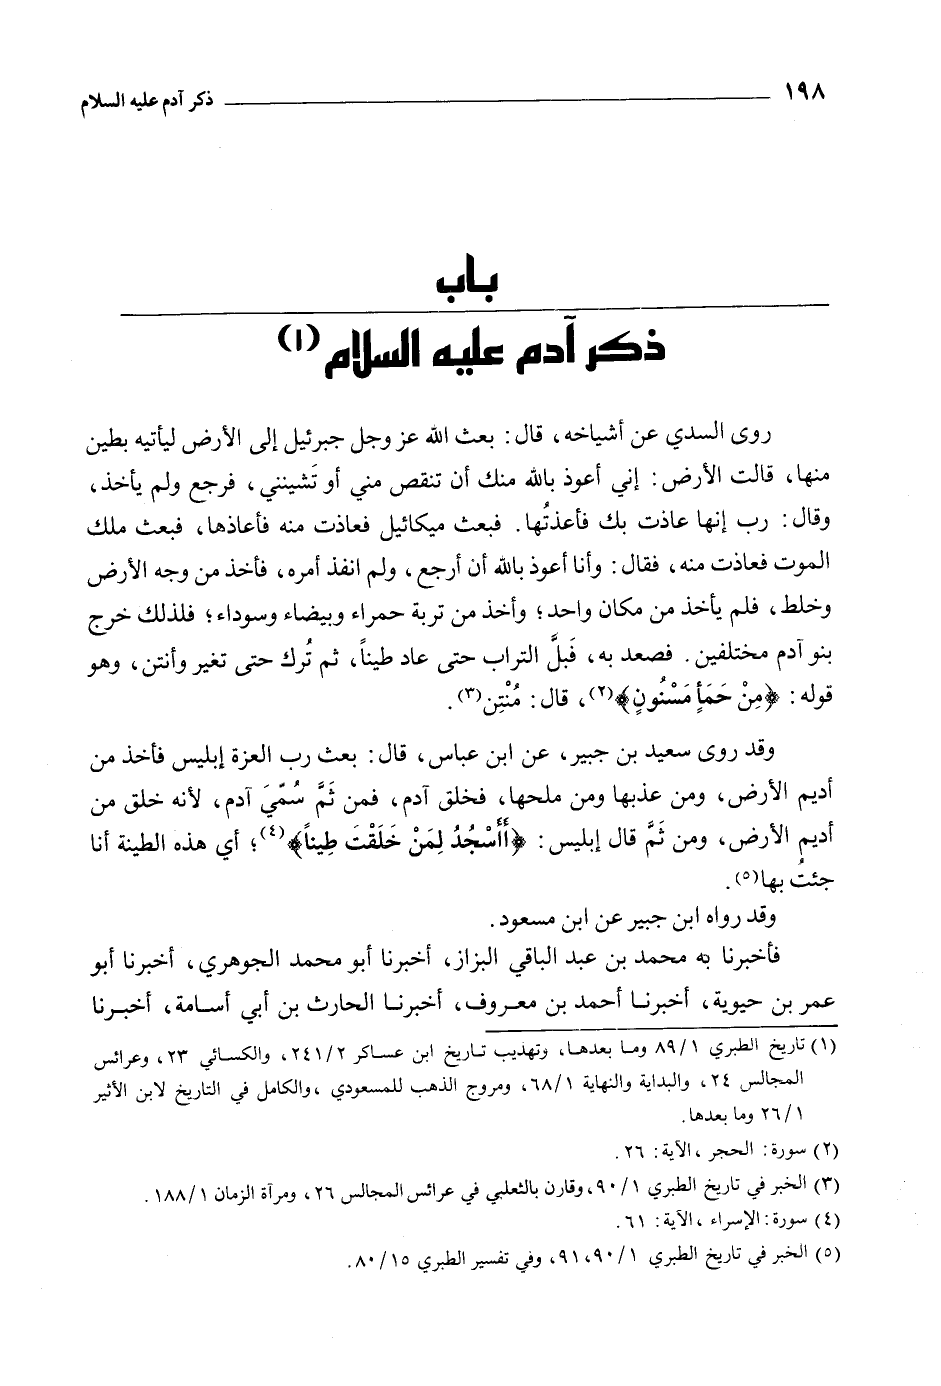 ١٩٨ ذكر آدم عليه السلام
باب
ذكر آدم عليه السلام (١)
روى السدي عن أشياخه، قال: بعث الله عز وجل جبرئيل إلى الأرض ليأتيه بطين
منها، قالت الأرض: إني أعوذ بالله منك أن تنقص مني أو تَشينني، فرجع ولم يأخذ،
وقال: رب إنها عاذت بك فأعذتُها. فبعث ميكائيل فعاذت منه فأعاذها، فبعث ملك
الموت فعاذت منه، فقال: وأنا أعوذ بالله أن أرجع، ولم انفذ أمره، فأخذ من وجه الأرض
وخلط، فلم يأخذ من مكان واحد؛ وأخذ من تربة حمراء وبيضاء وسوداء؛ فلذلك خرج
بنو آدم مختلفين. فصعد به، فَبلَّ التراب حتى عاد طيناً، ثم تُرك حتى تغير وأنتن، وهو
قوله: ﴿مِنْ حَمَأٍ مَسْنُونٍ﴾(٢)، قال: مُنْتِن(٣).
وقد روى سعيد بن جبير، عن ابن عباس، قال: بعث رب العزة إبليس فأخذ من
أديم الأرض، ومن عذبها ومن ملحها، فخلق آدم، فمن ثَمَّ سُمّيَ آدم، لأنه خلق من
أديم الأرض، ومن ثَمَّ قال إبليس: ﴿أَأَسْجُدُ لِمَنْ خَلَقْتَ طِيناً﴾(٤)؛ أي هذه الطينة أنا
جئتُ بها(٥).
وقد رواه ابن جبير عن ابن مسعود.
فأخبرنا به محمد بن عبد الباقي البزاز، أخبرنا أبو محمد الجوهري، أخبرنا أبو
عمر بن حيوية، أخبرنا أحمد بن معروف، أخبرنا الحارث بن أبي أسامة، أخبرنا
(١) تاريخ الطبري ٨٩/١ وما بعدها، وتهذيب تاريخ ابن عساكر ٢٤١/٢، والكسائي ٢٣، وعرائس
المجالس ٢٤، والبداية والنهاية ٦٨/١، ومروج الذهب للمسعودي ،والكامل في التاريخ لابن الأثير
٢٦/١ وما بعدها.
(٢) سورة: الحجر ،الآية: ٢٦.
(٣) الخبر في تاريخ الطبري ٩٠/١، وقارن بالثعلبي في عرائس المجالس ٢٦، ومرآة الزمان ١٨٨/١.
(٤) سورة: الإسراء ،الآية: ٦١.
(٥) الخبر في تاريخ الطبري ٩٠/١، ٩١، وفي تفسير الطبري ٨٠/١٥.